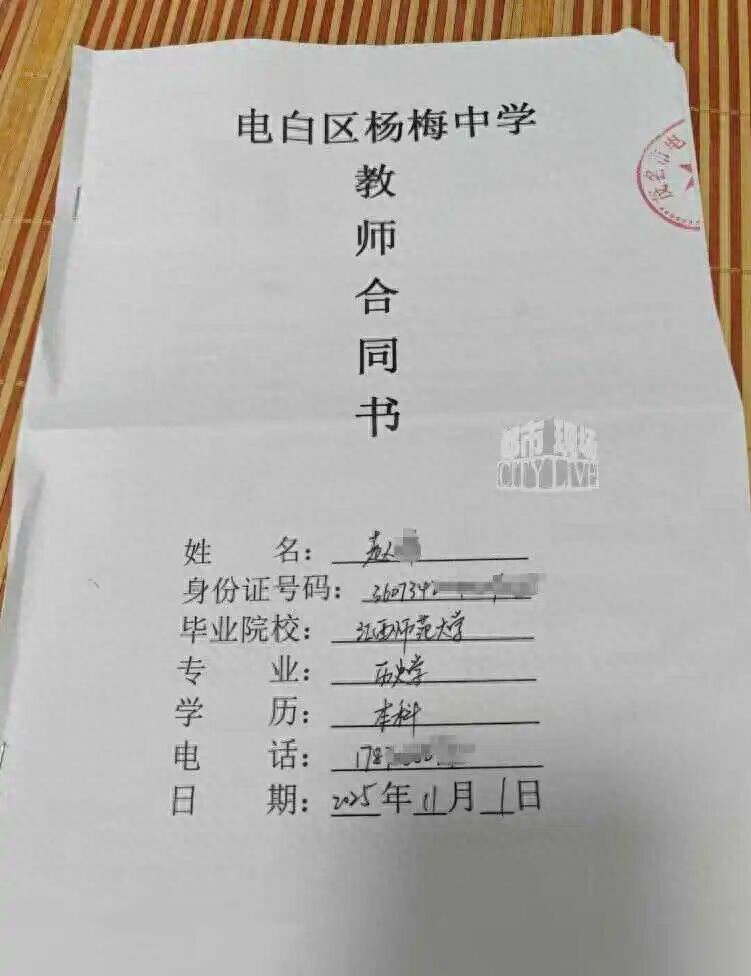 电白区杨梅中学
教
师
合
同
书
茂名市电
都市现场
CITY LIVE
姓 名：
身份证号码：360734
毕业院校：江西师范大学
专 业：历史学
学 历：本科
电 话：178
日 期：2025年11月1日